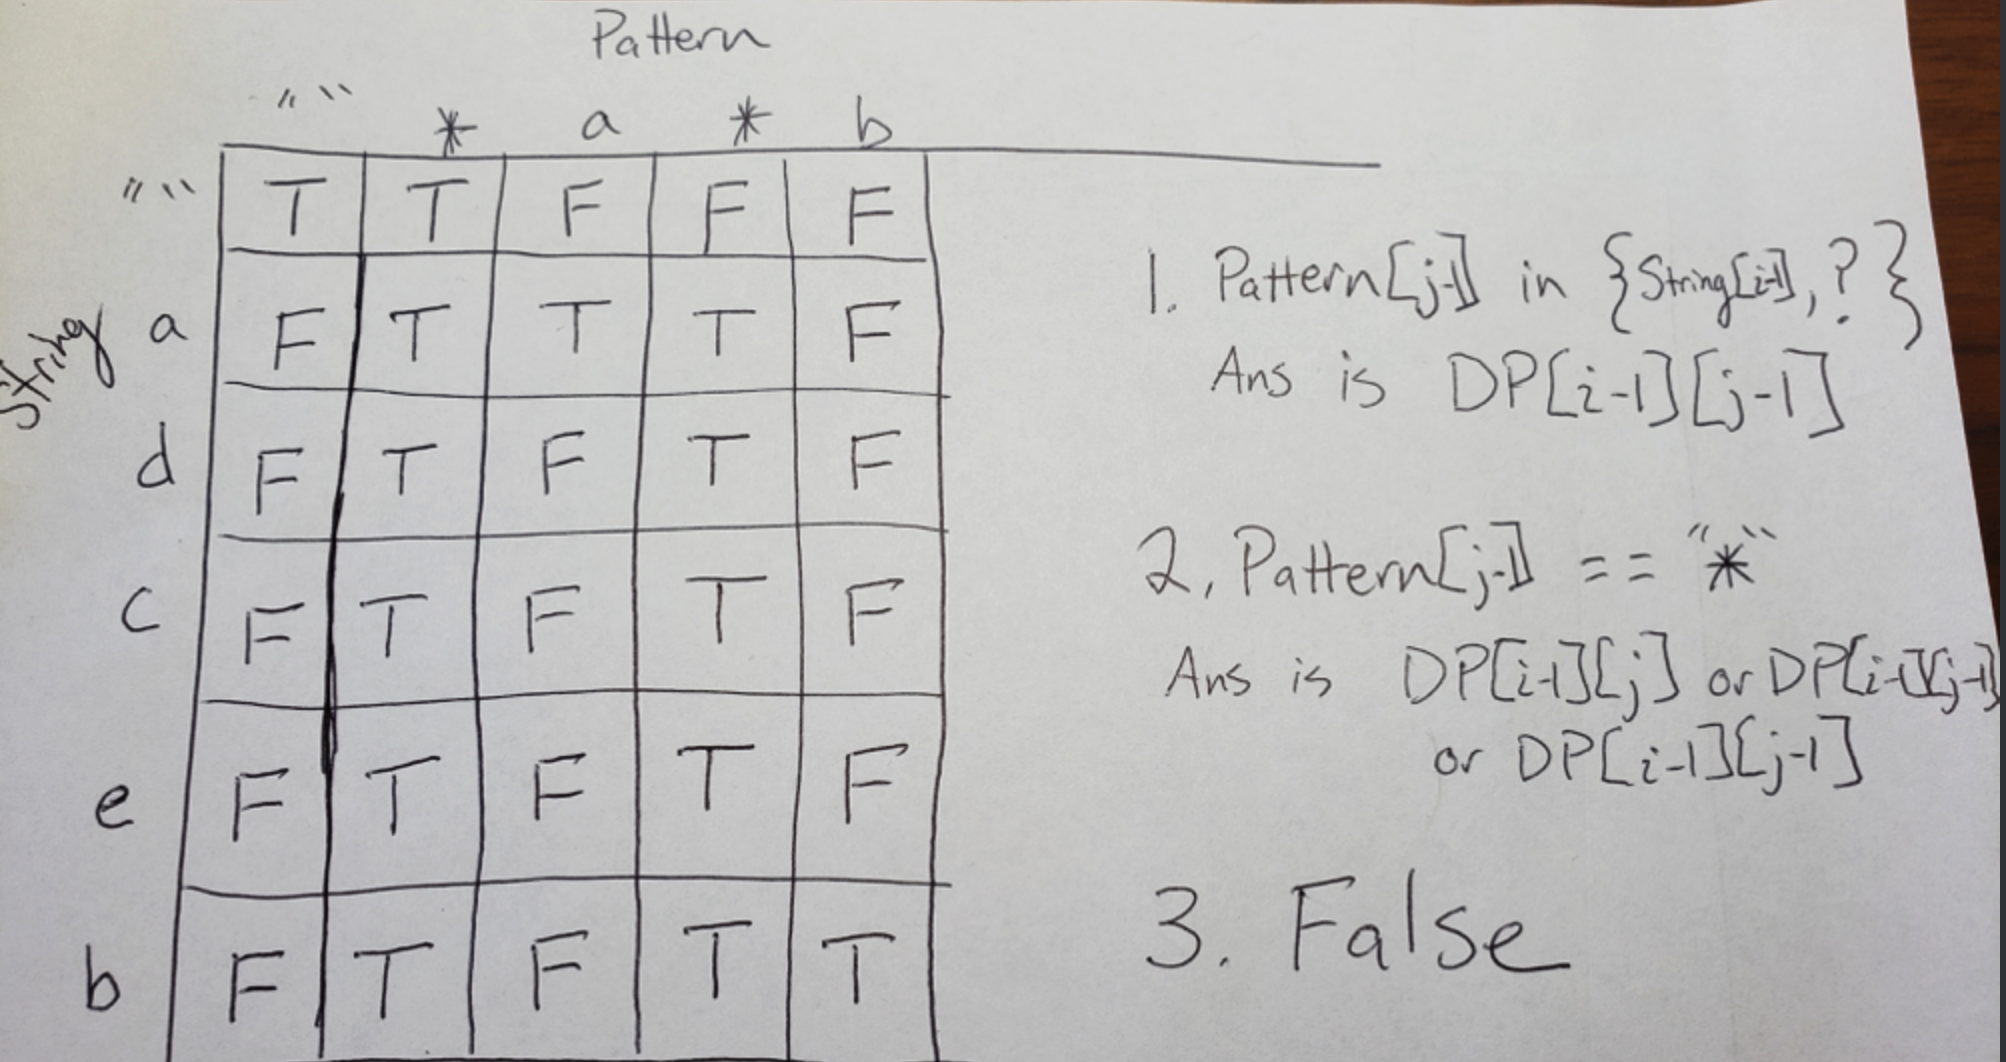 Pattern
"" * a * b
"" T T F F F
a F T T T F
d F T F T F
c F T F T F
e F T F T F
b F T F T T
String
1. Pattern[j-1] in {String[i-1], ?}
Ans is DP[i-1][j-1]
2. Pattern[j-1] == "*"
Ans is DP[i-1][j] or DP[i-1][j-1]
or DP[i-1][j-1]
3. False